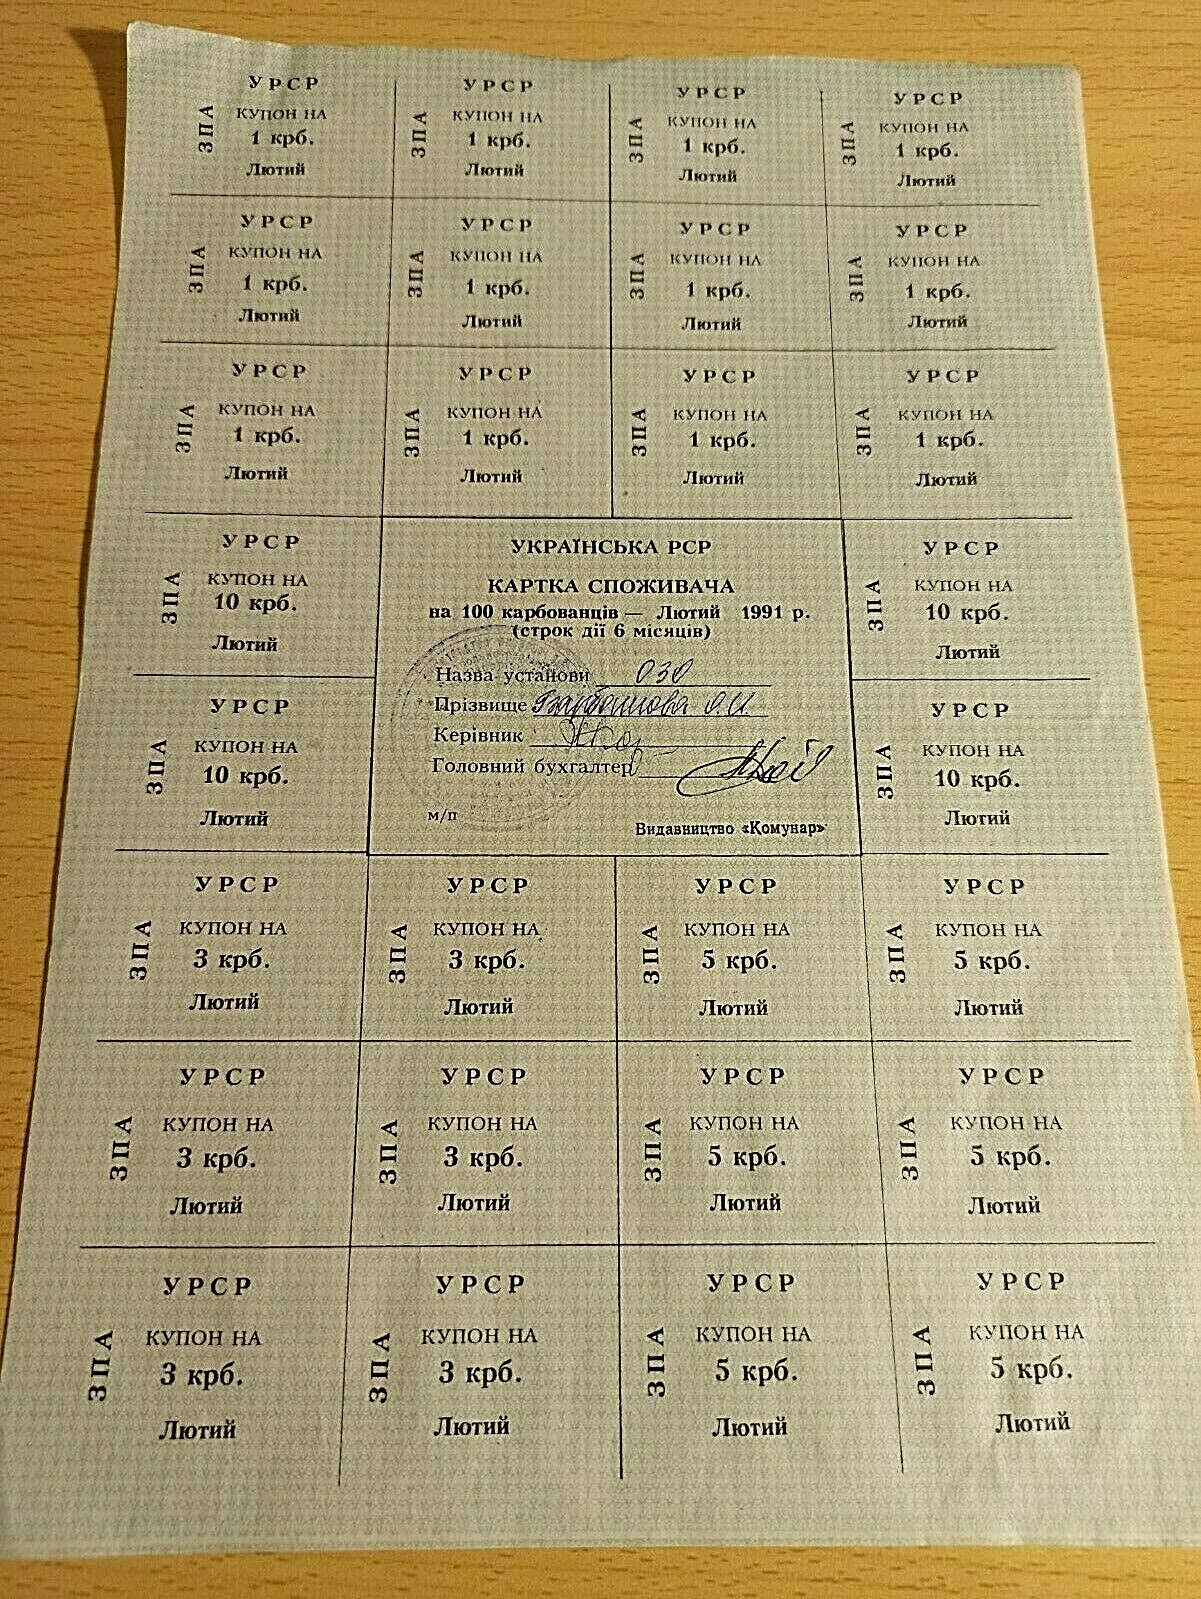 УРСР УРСР УРСР УРСР
ЗПА КУПОН НА ЗПА КУПОН НА ЗПА КУПОН НА ЗПА КУПОН НА
1 крб. 1 крб. 1 крб. 1 крб.
Лютий Лютий Лютий Лютий
УРСР УРСР УРСР УРСР
ЗПА КУПОН НА ЗПА КУПОН НА ЗПА КУПОН НА ЗПА КУПОН НА
1 крб. 1 крб. 1 крб. 1 крб.
Лютий Лютий Лютий Лютий
УРСР УРСР УРСР УРСР
ЗПА КУПОН НА ЗПА КУПОН НА ЗПА КУПОН НА ЗПА КУПОН НА
1 крб. 1 крб. 1 крб. 1 крб.
Лютий Лютий Лютий Лютий
УРСР
ЗПА КУПОН НА
10 крб.
Лютий
УРСР
ЗПА КУПОН НА
10 крб.
Лютий
УКРАЇНСЬКА РСР
КАРТКА СПОЖИВАЧА
на 100 карбованців — Лютий 1991 р.
(строк дії 6 місяців)
Назва установи 030
Прізвище О.И.
Керівник
Головний бухгалтер
м/п
Видавництво «Комунар»
УРСР
ЗПА КУПОН НА
10 крб.
Лютий
УРСР
ЗПА КУПОН НА
10 крб.
Лютий
УРСР УРСР УРСР УРСР
ЗПА КУПОН НА ЗПА КУПОН НА ЗПА КУПОН НА ЗПА КУПОН НА
3 крб. 3 крб. 5 крб. 5 крб.
Лютий Лютий Лютий Лютий
УРСР УРСР УРСР УРСР
ЗПА КУПОН НА ЗПА КУПОН НА ЗПА КУПОН НА ЗПА КУПОН НА
3 крб. 3 крб. 5 крб. 5 крб.
Лютий Лютий Лютий Лютий
УРСР УРСР УРСР УРСР
ЗПА КУПОН НА ЗПА КУПОН НА ЗПА КУПОН НА ЗПА КУПОН НА
3 крб. 3 крб. 5 крб. 5 крб.
Лютий Лютий Лютий Лютий